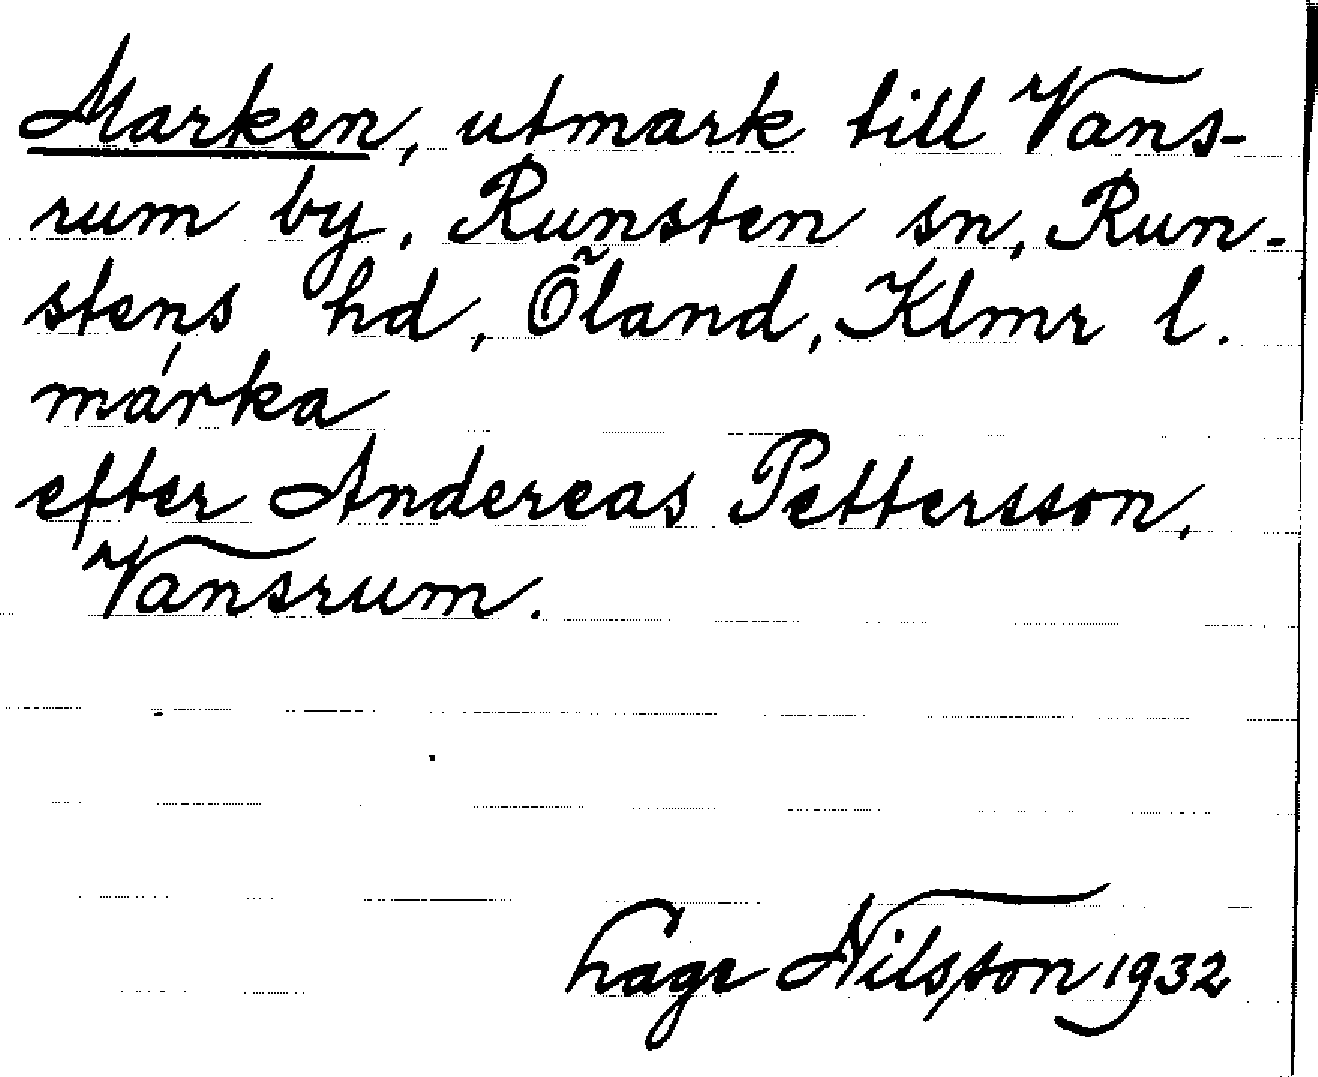 Marken, utmark till Vans-
rum by, Runsten sn, Run-
stens hd, Öland, Klmr l.
márka
efter Andereas Pettersson,
Vansrum.
Hage Nilsson 1932